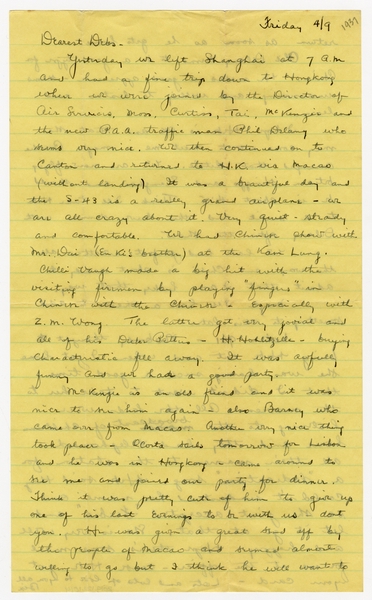 Friday 4/9 1937
Dearest Debs-
Yesterday we left Shanghai at 7 A.M.
and had a fine trip down to Hongkong
where we were joined by the Director of
Air Services, Moss, Curtiss, Tai, McKenzie and
the new P.A.A. traffic man Phil Delany who
seems very nice. We then continued on to
Canton and returned to H.K. via Macao
(without landing). It was a beautiful day and
the S-43 is a really grand airplane - we
are all crazy about it. Very quiet - steady
and comfortable. We had Chinese chow with
Mr. Dai (En Ki's brother) at the Kam Lung.
Chilli Vaugh made a big hit with the
visiting firemen by playing "fingers" in
Chinese with the Chinese - Especially with
Z.M. Wong. The latter got very jovial and
all of his - H. -
characteristics fell away. It was awfully
funny and we had a good party.
McKenzie is an old friend and it was
nice to see him again - also Barney who
came over from Macao. Another very nice thing
took place - sails tomorrow for Lisbon
and he was in Hongkong & came around to
see me and joined our party for dinner.
Think it was pretty cute of him to give up
one of his last Evenings to be with us don't
you. He was given a great send off by
the people of Macao and seemed almost
willing to go but I think he will want to